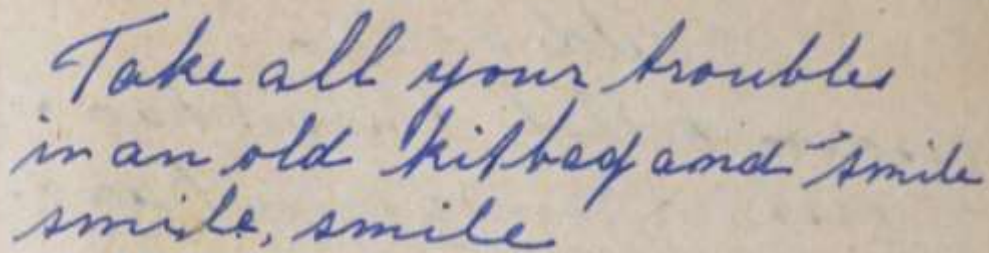 Take all your troubles
in an old kitbag and smile
smile, smile